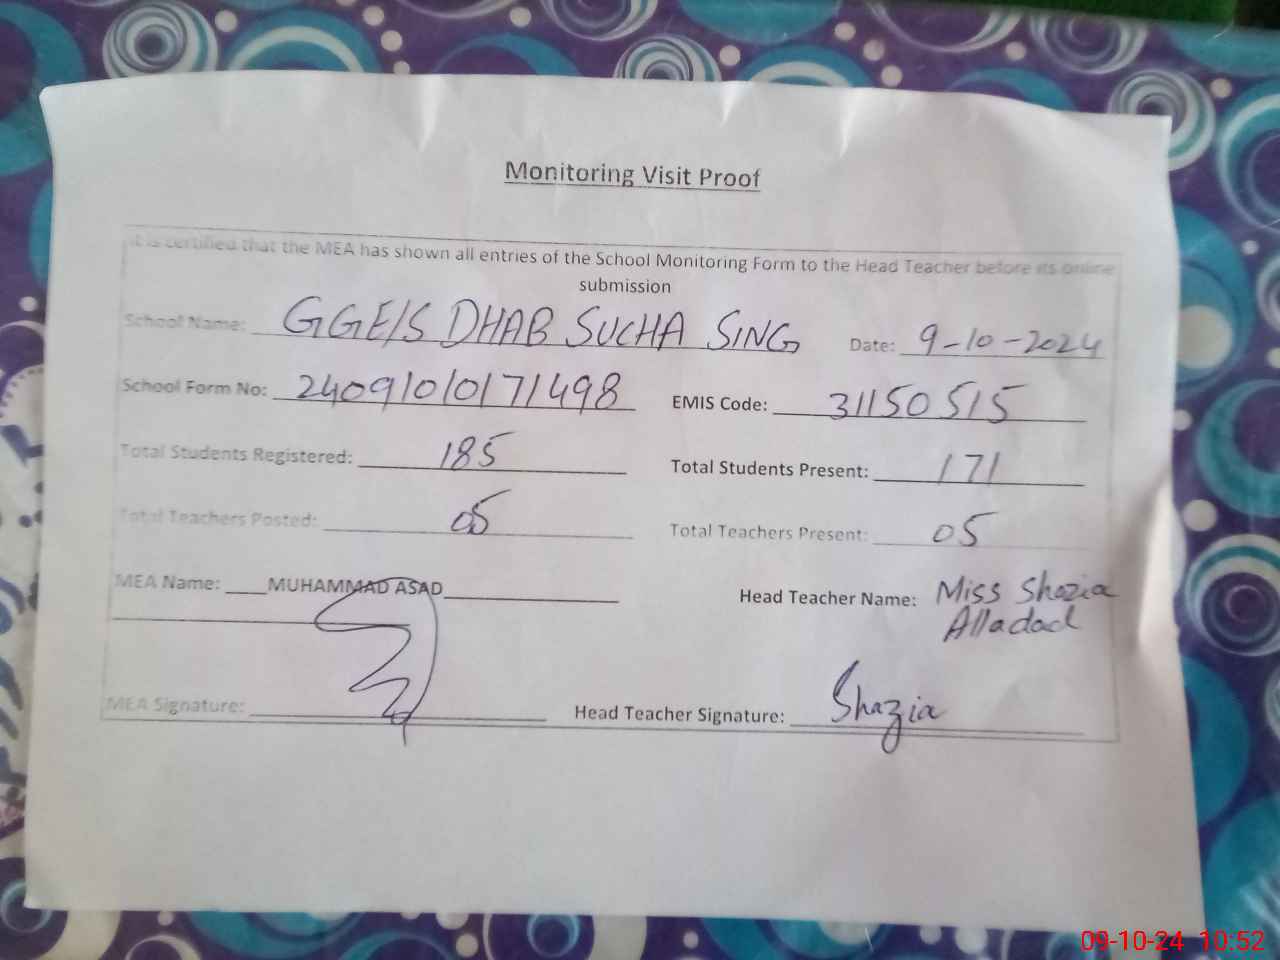 Monitoring Visit Proof
It is certified that the MEA has shown all entries of the School Monitoring Form to the Head Teacher before its online
submission
School Name: GGE/S DHAB SUCHA SING Date: 9-10-2024
School Form No: 24091010171498 EMIS Code: 31150515
Total Students Registered: 185 Total Students Present: 171
Total Teachers Posted: 05 Total Teachers Present: 05
MEA Name: MUHAMMAD ASAD Head Teacher Name: Miss Shazia
Alladad
MEA Signature: Head Teacher Signature: Shazia
09-10-24 10:52